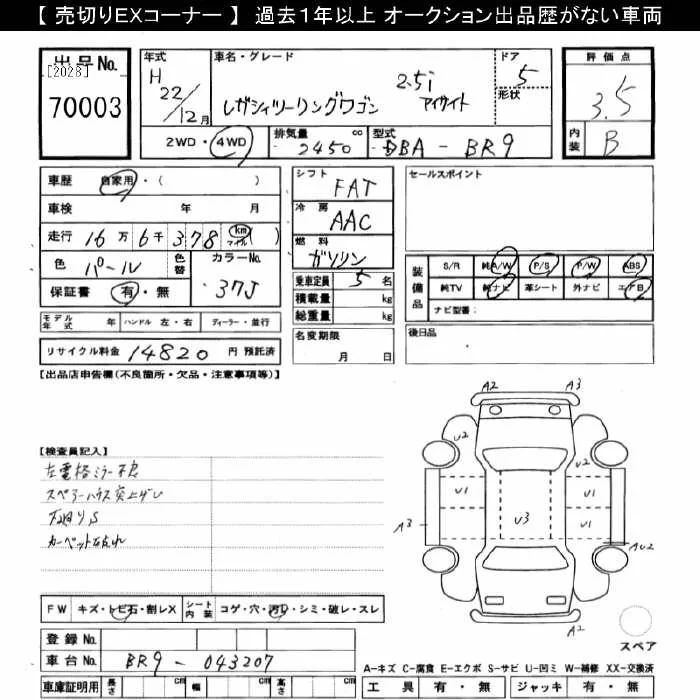 【 売切りEXコーナー 】 過去1年以上 オークション出品歴がない車両
出品No.
[2028]
70003
年式
H
22/12月
車名・グレード
レガシィツーリングワゴン
2.5i
アイサイト
ドア
5
形状
評価点
3.5
内装
B
2WD・4WD
排気量
2450
cc
型式
DBA - BR9
車歴
自家用・(　　　)
車検
年　月
走行
16万6千378
km
マイル
(　)
色
パール
色替
カラーNo.
37J
保証書
有・無
シフト
FAT
冷房
AAC
燃料
ガソリン
乗車定員
5名
積載量
kg
総重量
kg
セールスポイント
装備品
S/R
純A/W
P/S
P/W
ABS
純TV
純ナビ
革シート
外ナビ
エアB
ナビ型番:
モデル年式
年
ハンドル
左・右
ディーラー・並行
リサイクル料金
14820
円 預託済
名変期限
月　日
後日品
【出品店申告欄(不良箇所・欠品・注意事項等)】
【検査員記入】
左電格ミラー不良
下廻りS
FW
キズ・トビ石・割レX
シート内装
コゲ・穴・汚レ・シミ・破レ・スレ
登録No.
車台No.
BR9 - 043207
車庫証明用
長さ
cm
幅
cm
高さ
cm
A2
A3
U2
U2
U1
U3
U1
U1
A3
AU2
A2
スペア
A-キズ C-腐食 E-エクボ S-サビ U-凹ミ W-補修 XX-交換済
工具
有・無
ジャッキ
有・無